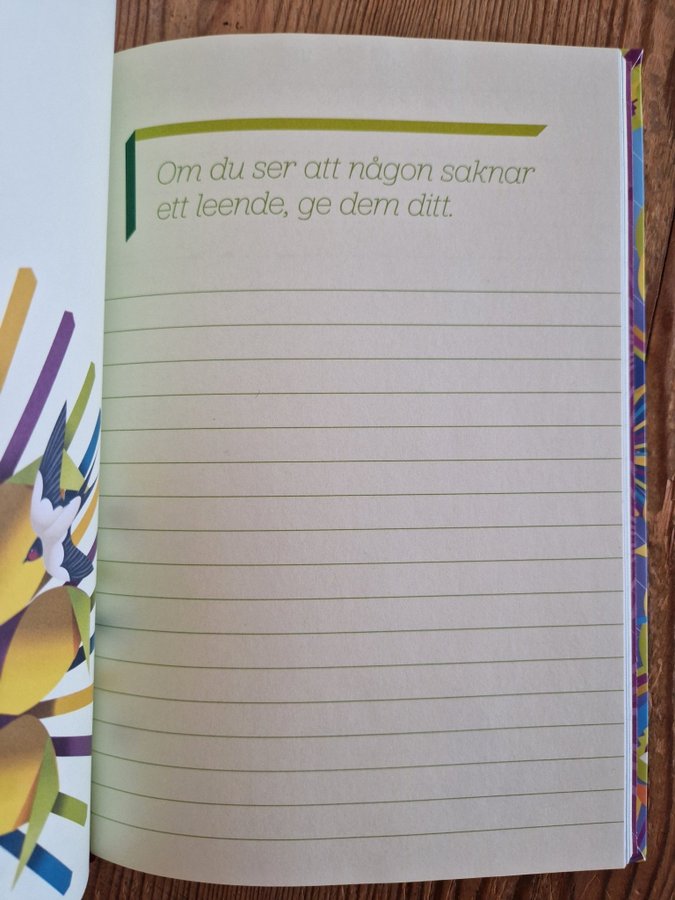 Om du ser att någon saknar
ett leende, ge dem ditt.